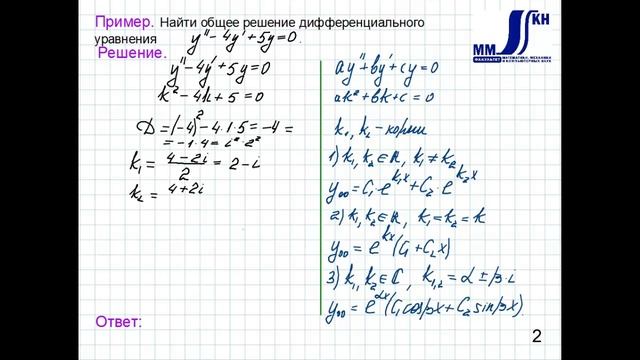 Пример. Найти общее решение дифференциального
уравнения y'' - 4y' + 5y = 0.
Решение.
y'' - 4y' + 5y = 0
k² - 4k + 5 = 0
D = (-4)² - 4·1·5 = -4 =
= -1·4 = i²·2²
k₁ = (4 - 2i)/2 = 2 - i
k₂ = 4 + 2i
Ответ:
ay'' + by' + cy = 0
ak² + bk + c = 0
k₁, k₂ - корни
1) k₁, k₂ ∈ ℝ, k₁ ≠ k₂
y₀₀ = C₁·e^(k₁x) + C₂·e^(k₂x)
2) k₁, k₂ ∈ ℝ, k₁ = k₂ = k
y₀₀ = e^(kx)(C₁ + C₂x)
3) k₁, k₂ ∈ ℂ, k₁,₂ = α ± β·i
y₀₀ = e^(αx)(C₁cosβx + C₂sinβx)
ММ КН
ФАКУЛЬТЕТ МАТЕМАТИКИ, МЕХАНИКИ
И КОМПЬЮТЕРНЫХ НАУК
2